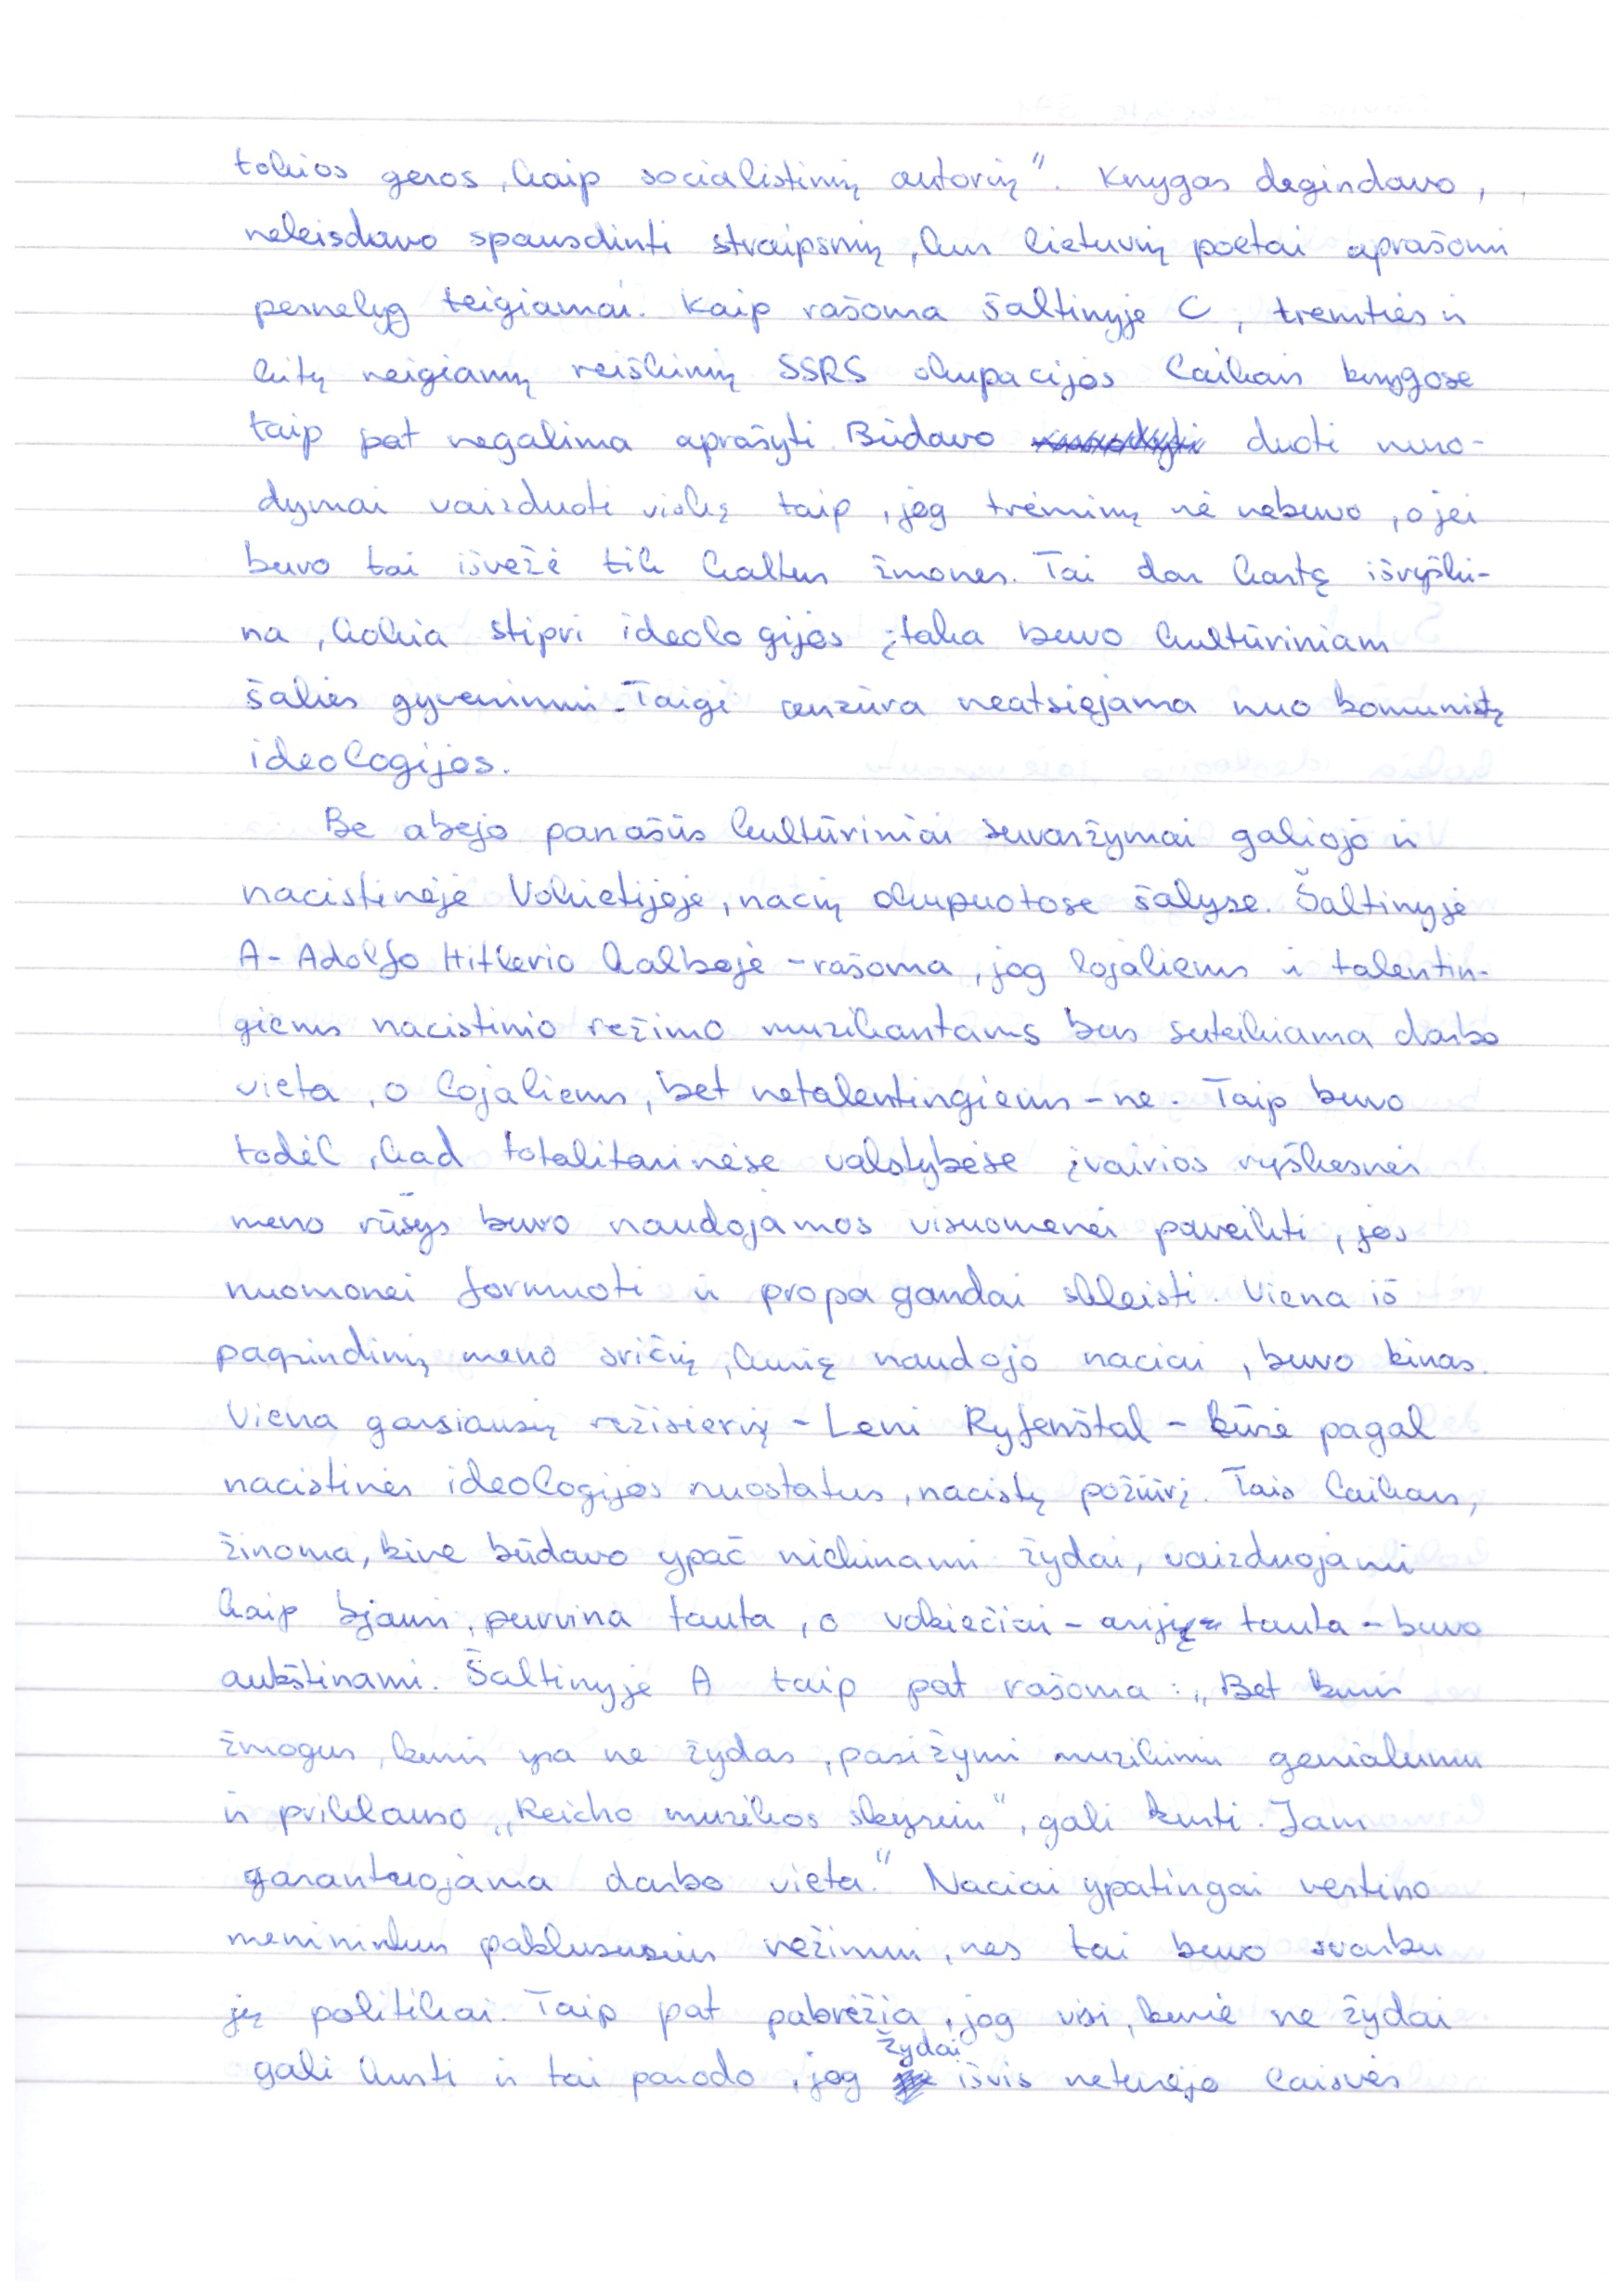 tokios geros, kaip socialistinių autorių". Knygas degindavo,
neleisdavo spausdinti straipsnių, kur lietuvių poetai aprašomi
pernelyg teigiamai. Kaip rašoma šaltinyje C, tremties ir
kitų neigiamų reiškinių SSRS okupacijos laikais knygose
taip pat negalima aprašyti. Būdavo duoti nuro-
dymai vaizduoti viską taip, jog trėmimų nė nebuvo, o jei
buvo tai išvežė tik kaltus žmones. Tai dar kartą išryški-
na, kokia stipri ideologijos įtaka buvo kultūriniam
šalies gyvenimui. Taigi cenzūra neatsiejama nuo komunistų
ideologijos.
Be abejo panašūs kultūriniai suvaržymai galiojo ir
nacistinėje Vokietijoje, nacių okupuotose šalyse. Šaltinyje
A - Adolfo Hitlerio kalboje - rašoma, jog lojaliems ir talentin-
giems nacistinio režimo muzikantams bus suteikiama darbo
vieta, o lojaliems, bet netalentingiems - ne. Taip buvo
todėl, kad totalitarinėse valstybėse įvairios ryškesnės
meno rūšys buvo naudojamos visuomenei paveikti, jos
nuomonei formuoti ir propagandai skleisti. Viena iš
pagrindinių meno sričių, kurią naudojo naciai, buvo kinas.
Viena garsiausių režisierių - Leni Ryfenštal - kūrė pagal
nacistinės ideologijos nuostatus, nacistų požiūrį. Tais laikais,
žinoma, kine būdavo ypač niekinami žydai, vaizduojami
kaip bjauri, purvina tauta, o vokiečiai - arijų tauta - buvo
aukštinami. Šaltinyje A taip pat rašoma: „Bet kuris
žmogus, kuris yra ne žydas, pasižymi muzikiniu genialumu
ir priklauso „Reicho muzikos skyriui", gali kurti. Jam
garantuojama darbo vieta." Naciai ypatingai vertino
menininkus paklususius režimui, nes tai buvo svarbu
jų politikai. Taip pat pabrėžia, jog visi, kurie ne žydai
gali kurti ir tai parodo, jog žydai išvis neturėjo laisvės